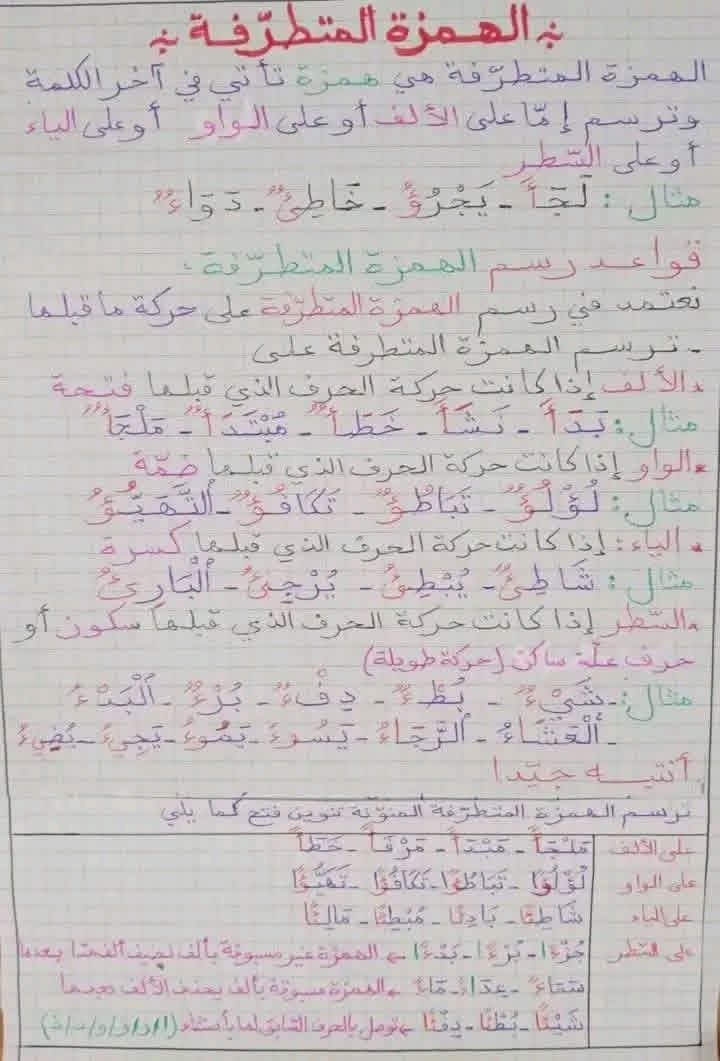 الهمزة المتطرّفة
الهمزة المتطرّفة هي همزة تأتي في آخر الكلمة
وترسم إمّا على الألف أو على الواو أو على الياء
أو على السّطر
مثال : لَجَأَ - يَجْرُؤُ - خَاطِئٌ - دَوَاءٌ
قواعد رسم الهمزة المتطرّفة :
نعتمد في رسم الهمزة المتطرّفة على حركة ما قبلها
- ترسم الهمزة المتطرفة على
* الألف إذا كانت حركة الحرف الذي قبلها فتحة
مثال : بَدَأَ - نَشَأَ - خَطَأٌ - مُبْتَدَأٌ - مَلْجَأٌ
* الواو إذا كانت حركة الحرف الذي قبلها ضمّة
مثال : لُؤْلُؤٌ - تَبَاطُؤٌ - تَكَافُؤٌ - اَلتَّهَيُّؤُ
* الياء : إذا كانت حركة الحرف الذي قبلها كسرة
مثال : شَاطِئٌ - يُبْطِئُ - يُرْجِئُ - اَلْبَارِئُ
* السّطر إذا كانت حركة الحرف الذي قبلها سكون أو
حرف علّة ساكن (حركة طويلة)
مثال : - شَيْءٌ - بُطْءٌ - دِفْءٌ - بُرْءٌ - اَلْبَدْءُ
- اَلْعَشَاءُ - اَلرَّجَاءُ - يَسُوءُ - يَمُوءُ - يَجِيءُ - يُضِيءُ
أنتبه جيّدا
ترسم الهمزة المتطرّفة المنوّنة تنوين فتح كما يلي
على الألف مَلْجَأً - مُبْتَدَأً - مَرْفَأً - خَطَأً
على الواو لُؤْلُؤًا - تَبَاطُؤًا - تَكَافُؤًا - تَهَيُّؤًا
على الياء شَاطِئًا - بَادِئًا - مُبْطِئًا - مَالِئًا
على السّطر جُزْءًا - بُرْءًا - بَدْءًا ← الهمزة غير مسبوقة بألف نضيف ألف مدّا بعدها
سَمَاءً - عِدَاءً - مَاءً ← الهمزة مسبوقة بألف يحذف الألف بعدها
شَيْئًا - بُطْئًا - دِفْئًا ← توصل بالحرف السّابق لها باستثناء